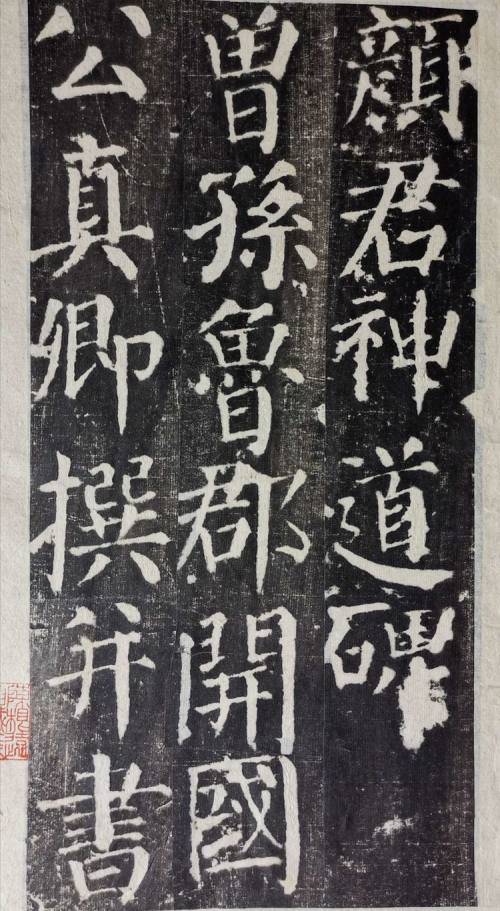 顔君神道碑
曽孫魯郡開國
公真卿撰并書